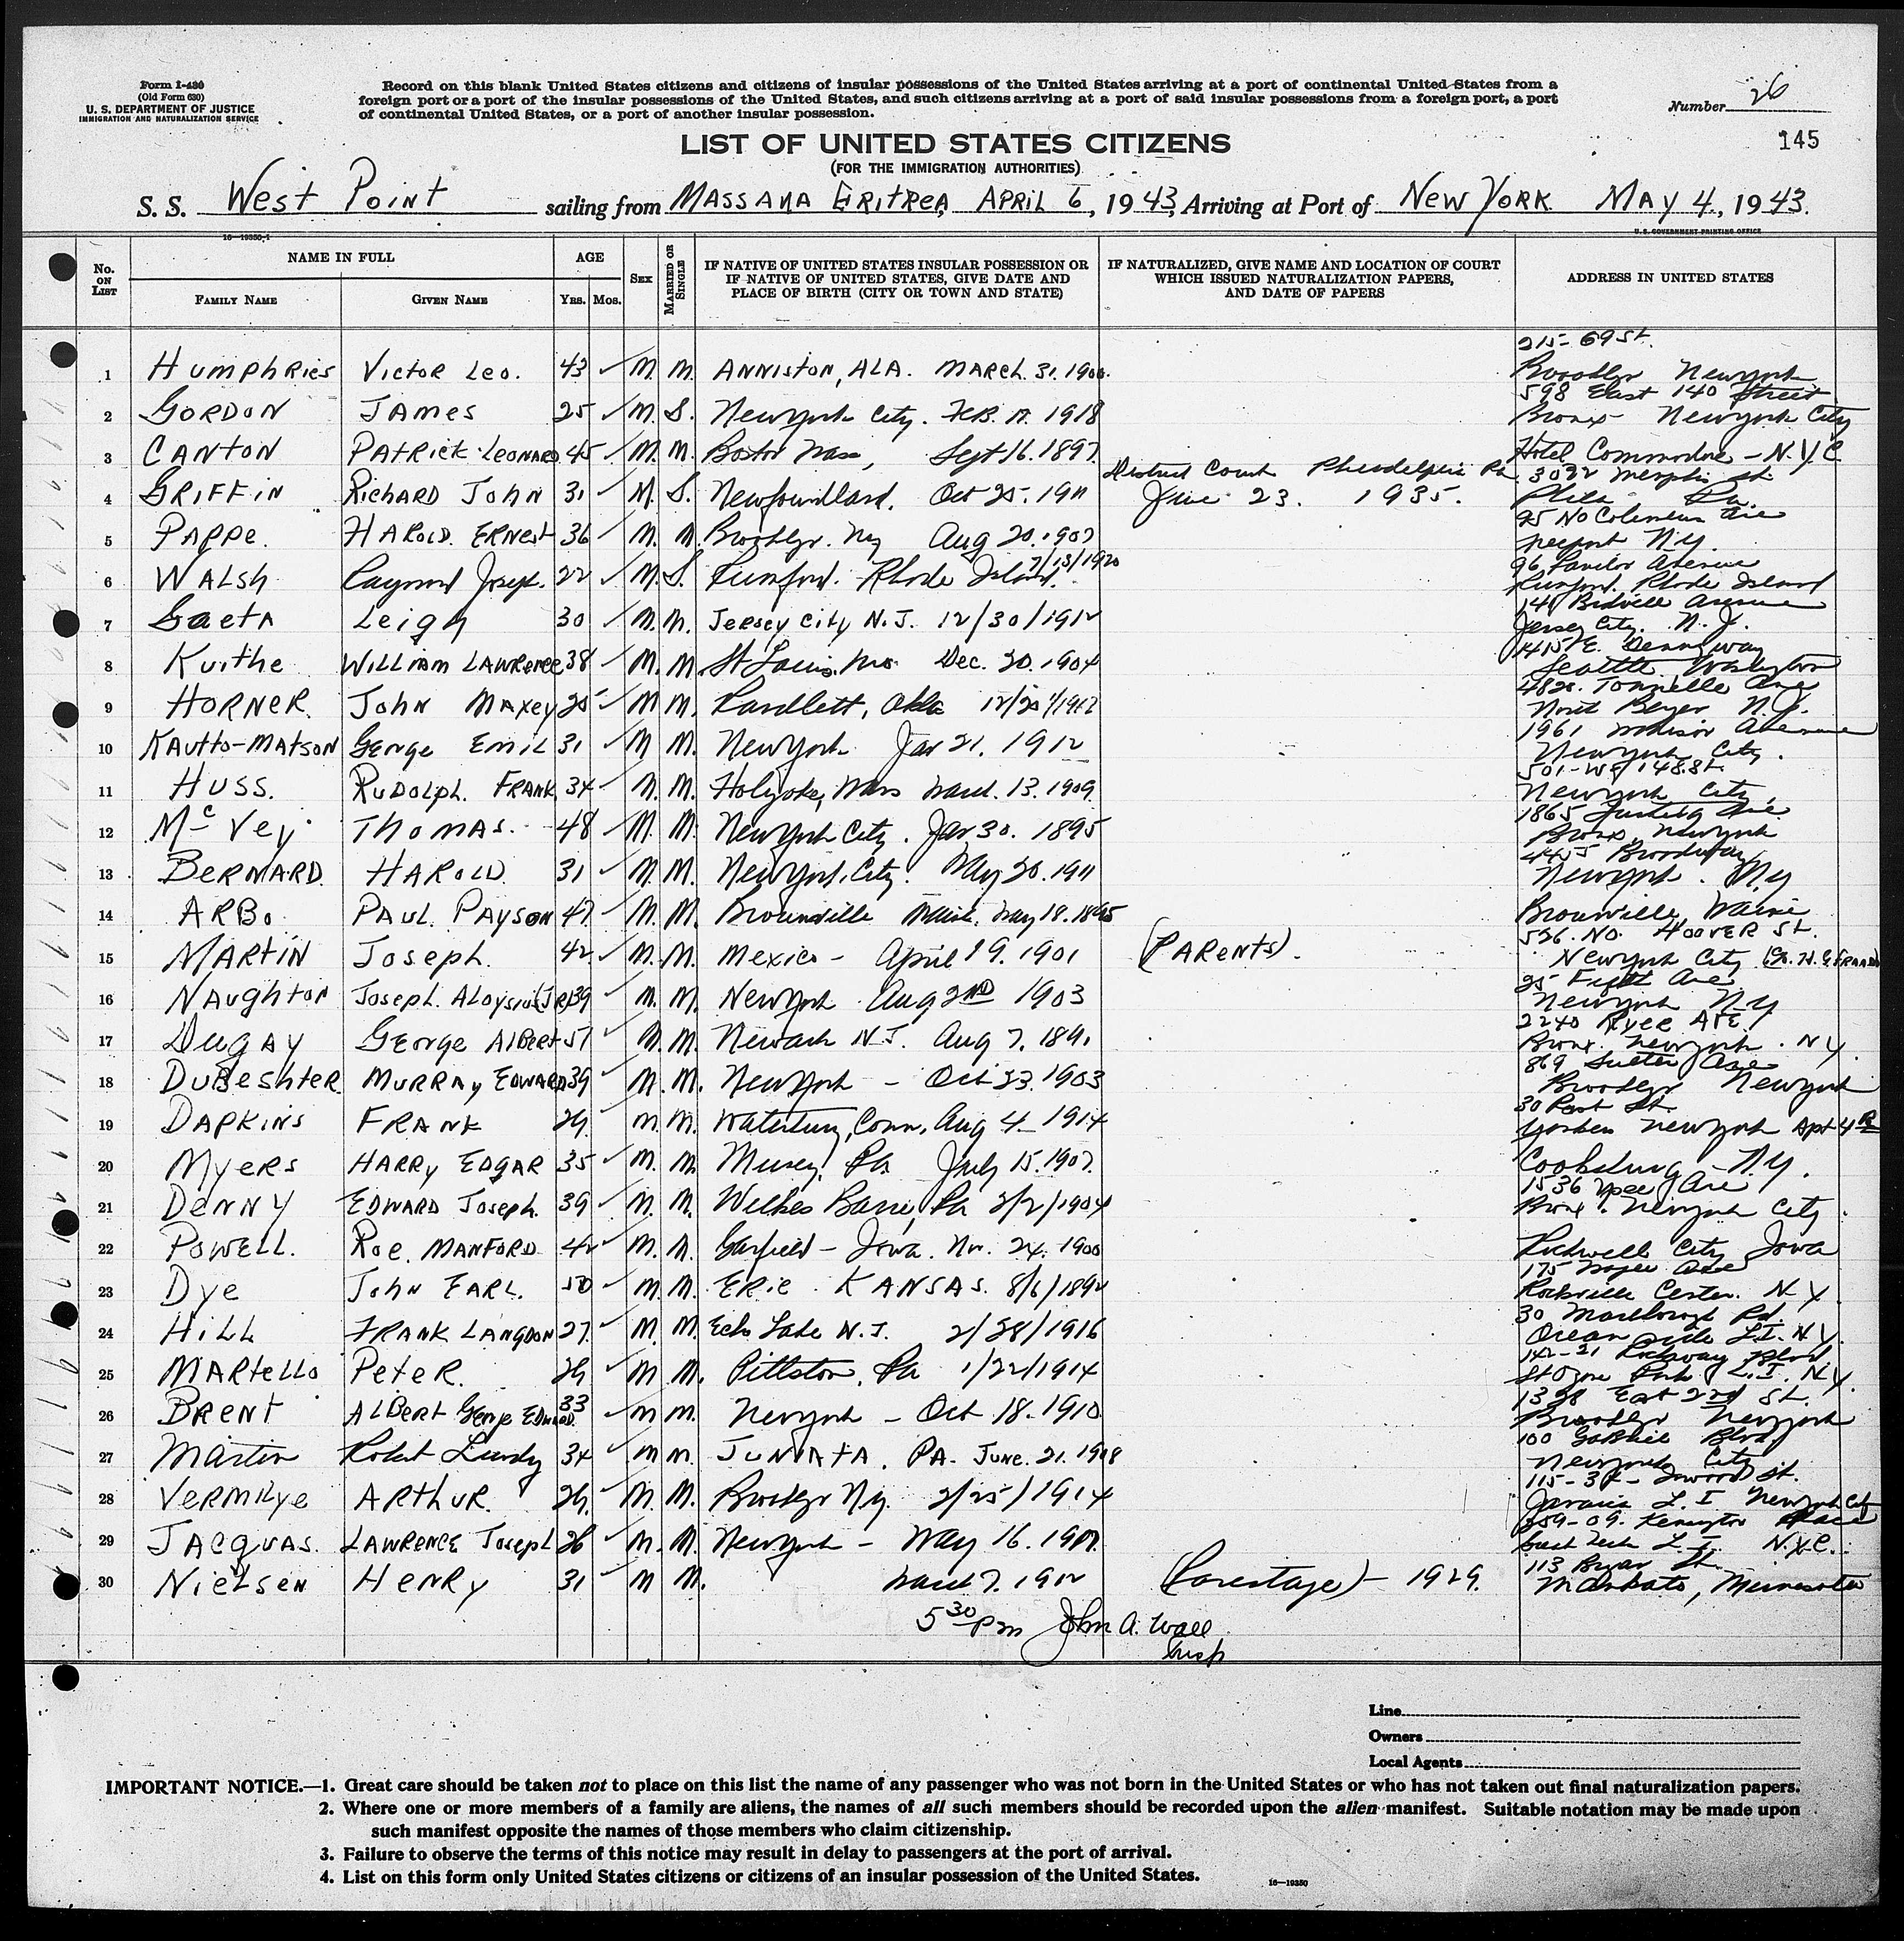 Form I-430
(Old Form 630)
U. S. DEPARTMENT OF JUSTICE
IMMIGRATION AND NATURALIZATION SERVICE
Record on this blank United States citizens and citizens of insular possessions of the United States arriving at a port of continental United States from a
foreign port or a port of the insular possessions of the United States, and such citizens arriving at a port of said insular possessions from a foreign port, a port
of continental United States, or a port of another insular possession.
Number 26
145
LIST OF UNITED STATES CITIZENS
(FOR THE IMMIGRATION AUTHORITIES)
S. S. West Point sailing from MASSAWA ERITREA, APRIL 6, 1943, Arriving at Port of New York May 4, 1943.
16—19350-1
U. S. GOVERNMENT PRINTING OFFICE
No. ON LIST
NAME IN FULL
FAMILY NAME
GIVEN NAME
AGE
YRS. MOS.
SEX
MARRIED OR SINGLE
IF NATIVE OF UNITED STATES INSULAR POSSESSION OR
IF NATIVE OF UNITED STATES, GIVE DATE AND
PLACE OF BIRTH (CITY OR TOWN AND STATE)
IF NATURALIZED, GIVE NAME AND LOCATION OF COURT
WHICH ISSUED NATURALIZATION PAPERS,
AND DATE OF PAPERS
ADDRESS IN UNITED STATES
215- 69 St.
1 Humphries Victor Leo. 43 M. M. ANNISTON, ALA. MARCH. 31. 1900. Brooklyn New York
598 East 140 Street
2 GORDON JAMES 25 M. S. New York City. FEB. 1918 Bronx New York City
3 CANTON PATRICK LEONARD 45 M. M. Boston Mass, Sept 16. 1897. Hotel Commodore - N.Y.C
District Court Philadelphia Pa. 3032 Memphis St
4 GRIFFIN RICHARD JOHN 31 M. S. Newfoundland. Oct 25. 1911 June 23. 1935. Phila Pa.
5 PAPPE. HAROLD. ERNEST 36 M. M. Brooklyn. Ny Aug 20. 1907 Freeport N.Y.
7/13/1920
6 WALSH Raymond Joseph. 22 M. S. Rumford. Rhode Island. Rumford. Rhode Island
7 Gaeta Leigh 30 M. M. Jersey City N.J. 12/30/1912 Jersey City. N.J.
1415 E. Denny way
8 Kuithe WILLIAM LAWRENCE 38 M. M. St Louis. Mo. Dec. 20. 1904 Seattle Washington
4828. Tonnelle Ave
9 HORNER. John Maxey 25 M M. Randlett, Okla North Bergen N.J.
1961 Madison Avenue
10 KAUTTO-MATSON George Emil 31 M M. New York Jan 21. 1912 New York City.
501-W 148 St.
11 HUSS. RUDOLPH. FRANK. 34 M. M. Holyoke, Mass March. 13. 1909 New York City
1865 Ave
12 McVey THOMAS. 48 M. M. New York City. Jan 30. 1895 Bronx, New York
4455 Broadway
13 BERNARD. HAROLD. 31 M. M. New York. City. May 20. 1911 New York. N.y
14 ARBO. PAUL PAYSON 47 M. M. Brownville Maine. May 18. 1895 Brownville, Maine
526. NO. HOOVER St.
15 MARTIN Joseph. 42 M. M. Mexico - April 19. 1901 (PARENTS). New York City
25 Fifth Ave
16 NAughton Joseph. Aloysius (JR) 39 M. M. New York Aug 2ND 1903 New York N.Y
2240 Ryer AVE
17 Dugay GEorge AlBert 51 M. M. Newark N.J. Aug 7. 1891 Bronx. New York. N.Y.
869 Sutter Ave
18 DuBeshter MURRAY EDWARD 39 M. M. New York - Oct 23. 1903 Brooklyn New York
30 Post St.
19 DAPKINS FRANK 29. M. M. Waterbury, Conn, Aug 4 1914 Yonkers New York Apt 4 R
20 Myers HARRY EDGAR 35 M. M. Muncy, Pa July 15. 1907. Cooksburg - N.Y.
21 DENNY EDWARD Joseph. 39 M. M. Wilkes Barre, Pa 2/2/1904 Bronx. New York City
22 POWELL. Roe. MANFORD 42 M. M. Garfield - Iowa. Nov. 24. 1900 Rockwell City Iowa
23 Dye John EARL. 50 M. M. ERIE KANSAS. 8/6/1892 Rockville Center. N.Y.
30 Marlborough Rd.
24 HILL FRANK LANGDON 27. M. M. Echo Lake N.J. 2/28/1916 Ocean side L.I. N.Y.
142-21 Rockaway Blvd
25 MARTELLO PETER. 29 M M. Pittston, Pa 1/22/1914 Ozone Park L.I. N.Y.
1328 East 2nd St.
26 BRENT ALBERT George EDWARD. 33 M M. New York - Oct 18. 1910 Brooklyn New York
27 Martin Robert Lundy 34 M M. JUNIATA. PA. JUNE. 21. 1908 New York City
28 Vermilye ARTHUR. 29. M. M. Brooklyn N.y. 2/25/1914 Jamaica L.I New York City
259-09. Kensington Place
29 JACQUAS. LAWRENCE Joseph M. M. New York - May 16. Great Neck L.I. N.Y.C.
30 NIELSEN HENRY 31 M M. March 7. 1912 (Parentage) - 1929. Mankato, Minnesota
5 30 pm John A. Wall
Insp
Line
Owners
Local Agents
IMPORTANT NOTICE.—1. Great care should be taken not to place on this list the name of any passenger who was not born in the United States or who has not taken out final naturalization papers.
2. Where one or more members of a family are aliens, the names of all such members should be recorded upon the alien manifest. Suitable notation may be made upon
such manifest opposite the names of those members who claim citizenship.
3. Failure to observe the terms of this notice may result in delay to passengers at the port of arrival.
4. List on this form only United States citizens or citizens of an insular possession of the United States.
16—19350